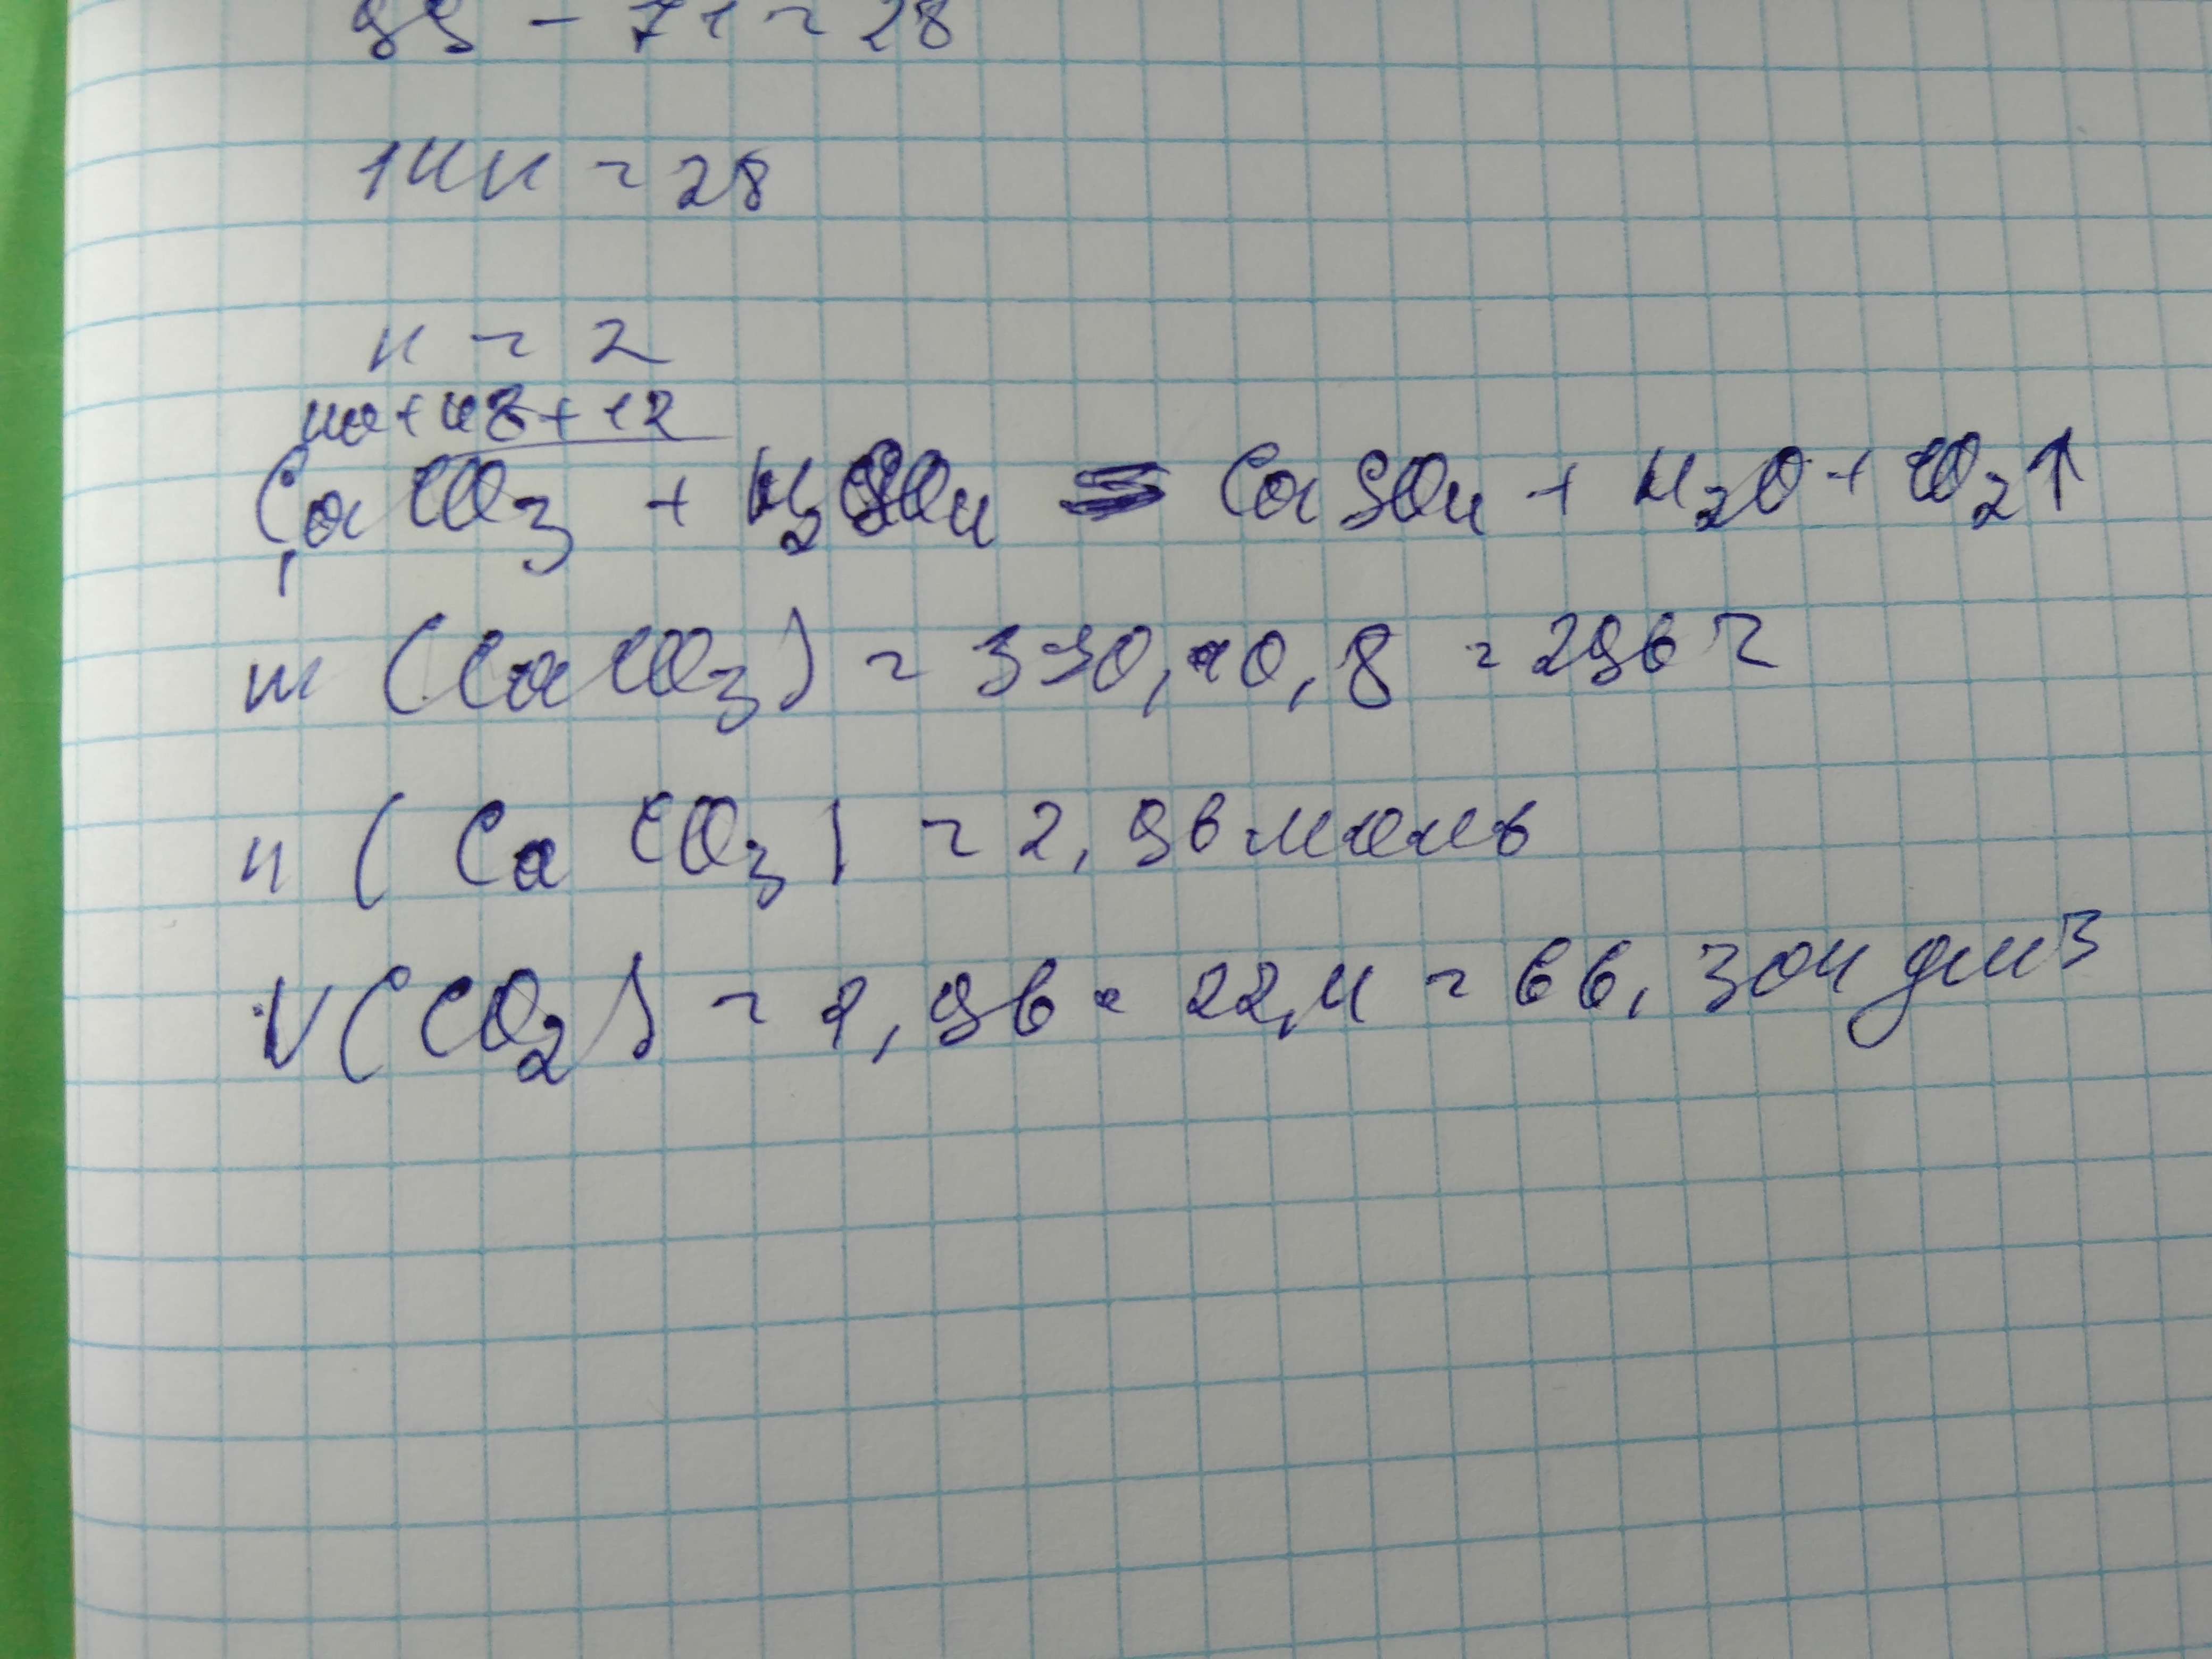 99 - 71 = 28
14n = 28
n = 2
40+48+12
CaCO3 + H2SO4 = CaSO4 + H2O + CO2↑
m (CaCO3) = 370, · 0,8 = 296 г
n (CaCO3) = 2,96 моль
V(CO2) = 2,96 · 22,4 = 66,304 дм3